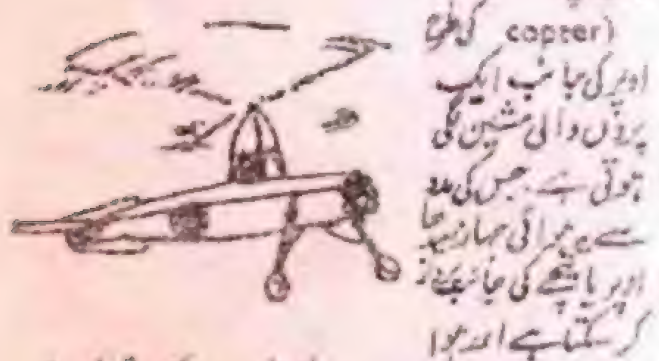 copter) کی طرح
اوپر کی جانب ایک
پروں والی مشین لگی
ہوتی ہے۔ جس کی مدد
سے یہ ہوائی جہاز سیدھا
اوپر یا نیچے کی جانب پرواز
کر سکتا ہے اور ہوا